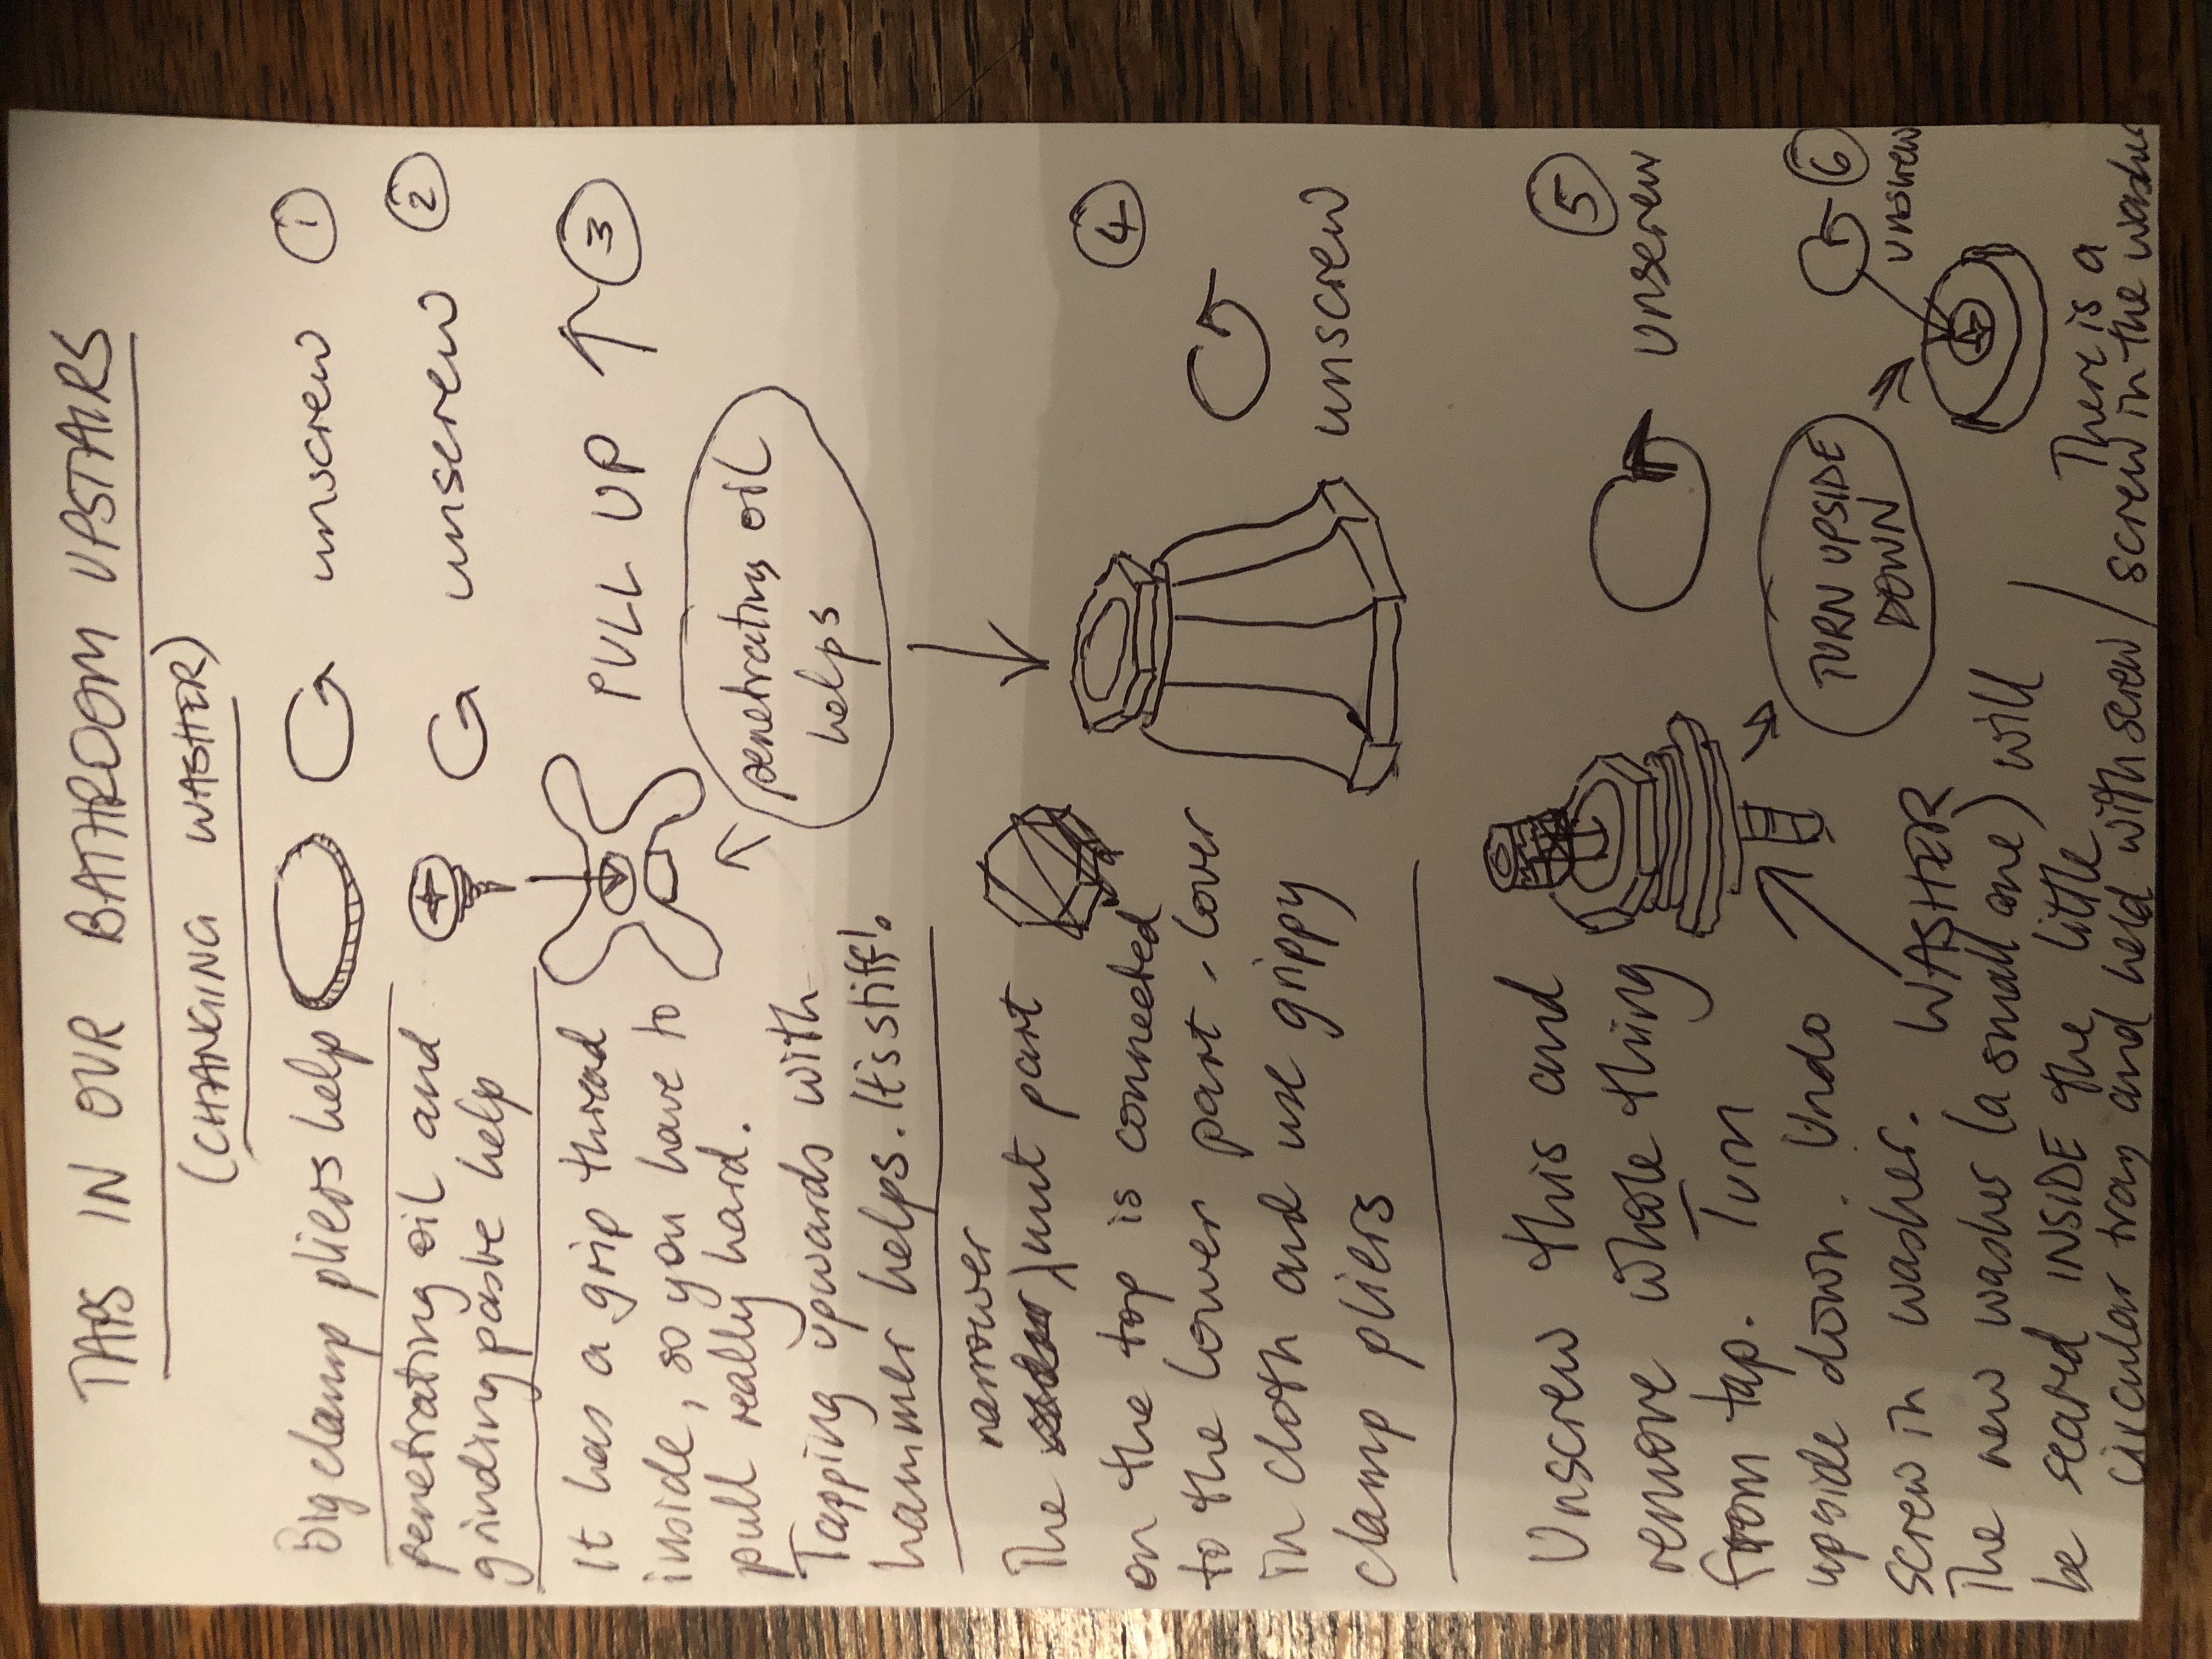 TAPS IN OUR BATHROOM UPSTAIRS
(CHANGING WASHER)
Big clamp pliers help
unscrew
1
penetrating oil and
grinding paste help
unscrew
2
It has a grip thread
inside, so you have to
pull really hard.
Tapping upwards with
hammer helps. It's stiff!
PULL UP
3
penetrating oil
helps
narrower
The nut part
on the top is connected
to the lower part. Cover
in cloth and use grippy
clamp pliers
4
unscrew
Unscrew this and
remove whole thing
from tap. Turn
upside down. Undo
screw in washer.
WASHER
The new washer (a small one) will
be seated INSIDE the little
circular tray and held with screw
5
unscrew
TURN UPSIDE
DOWN
6
unscrew
There is a
screw in the washer